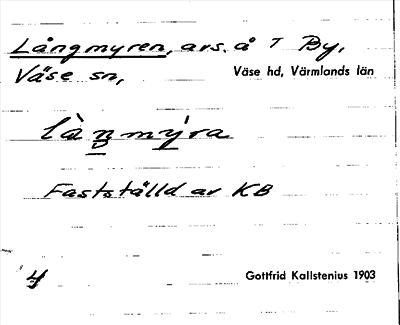 Långmyren, avs. å T By,
Väse sn, Väse hd, Värmlands län
làŋmy̱ra
Fastställd av KB
4 Gottfrid Kallstenius 1903